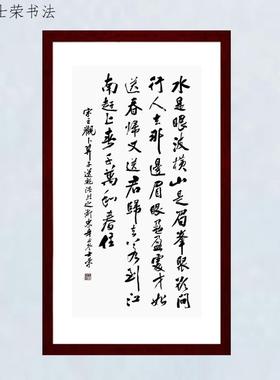 士荣书法
水是眼波横山是眉峯聚欲问
行人去那边眉眼盈盈處才始
送春归又送君歸去若到江
南赶上春千万和春住
宋王觀卜算子送鲍浩然之浙东